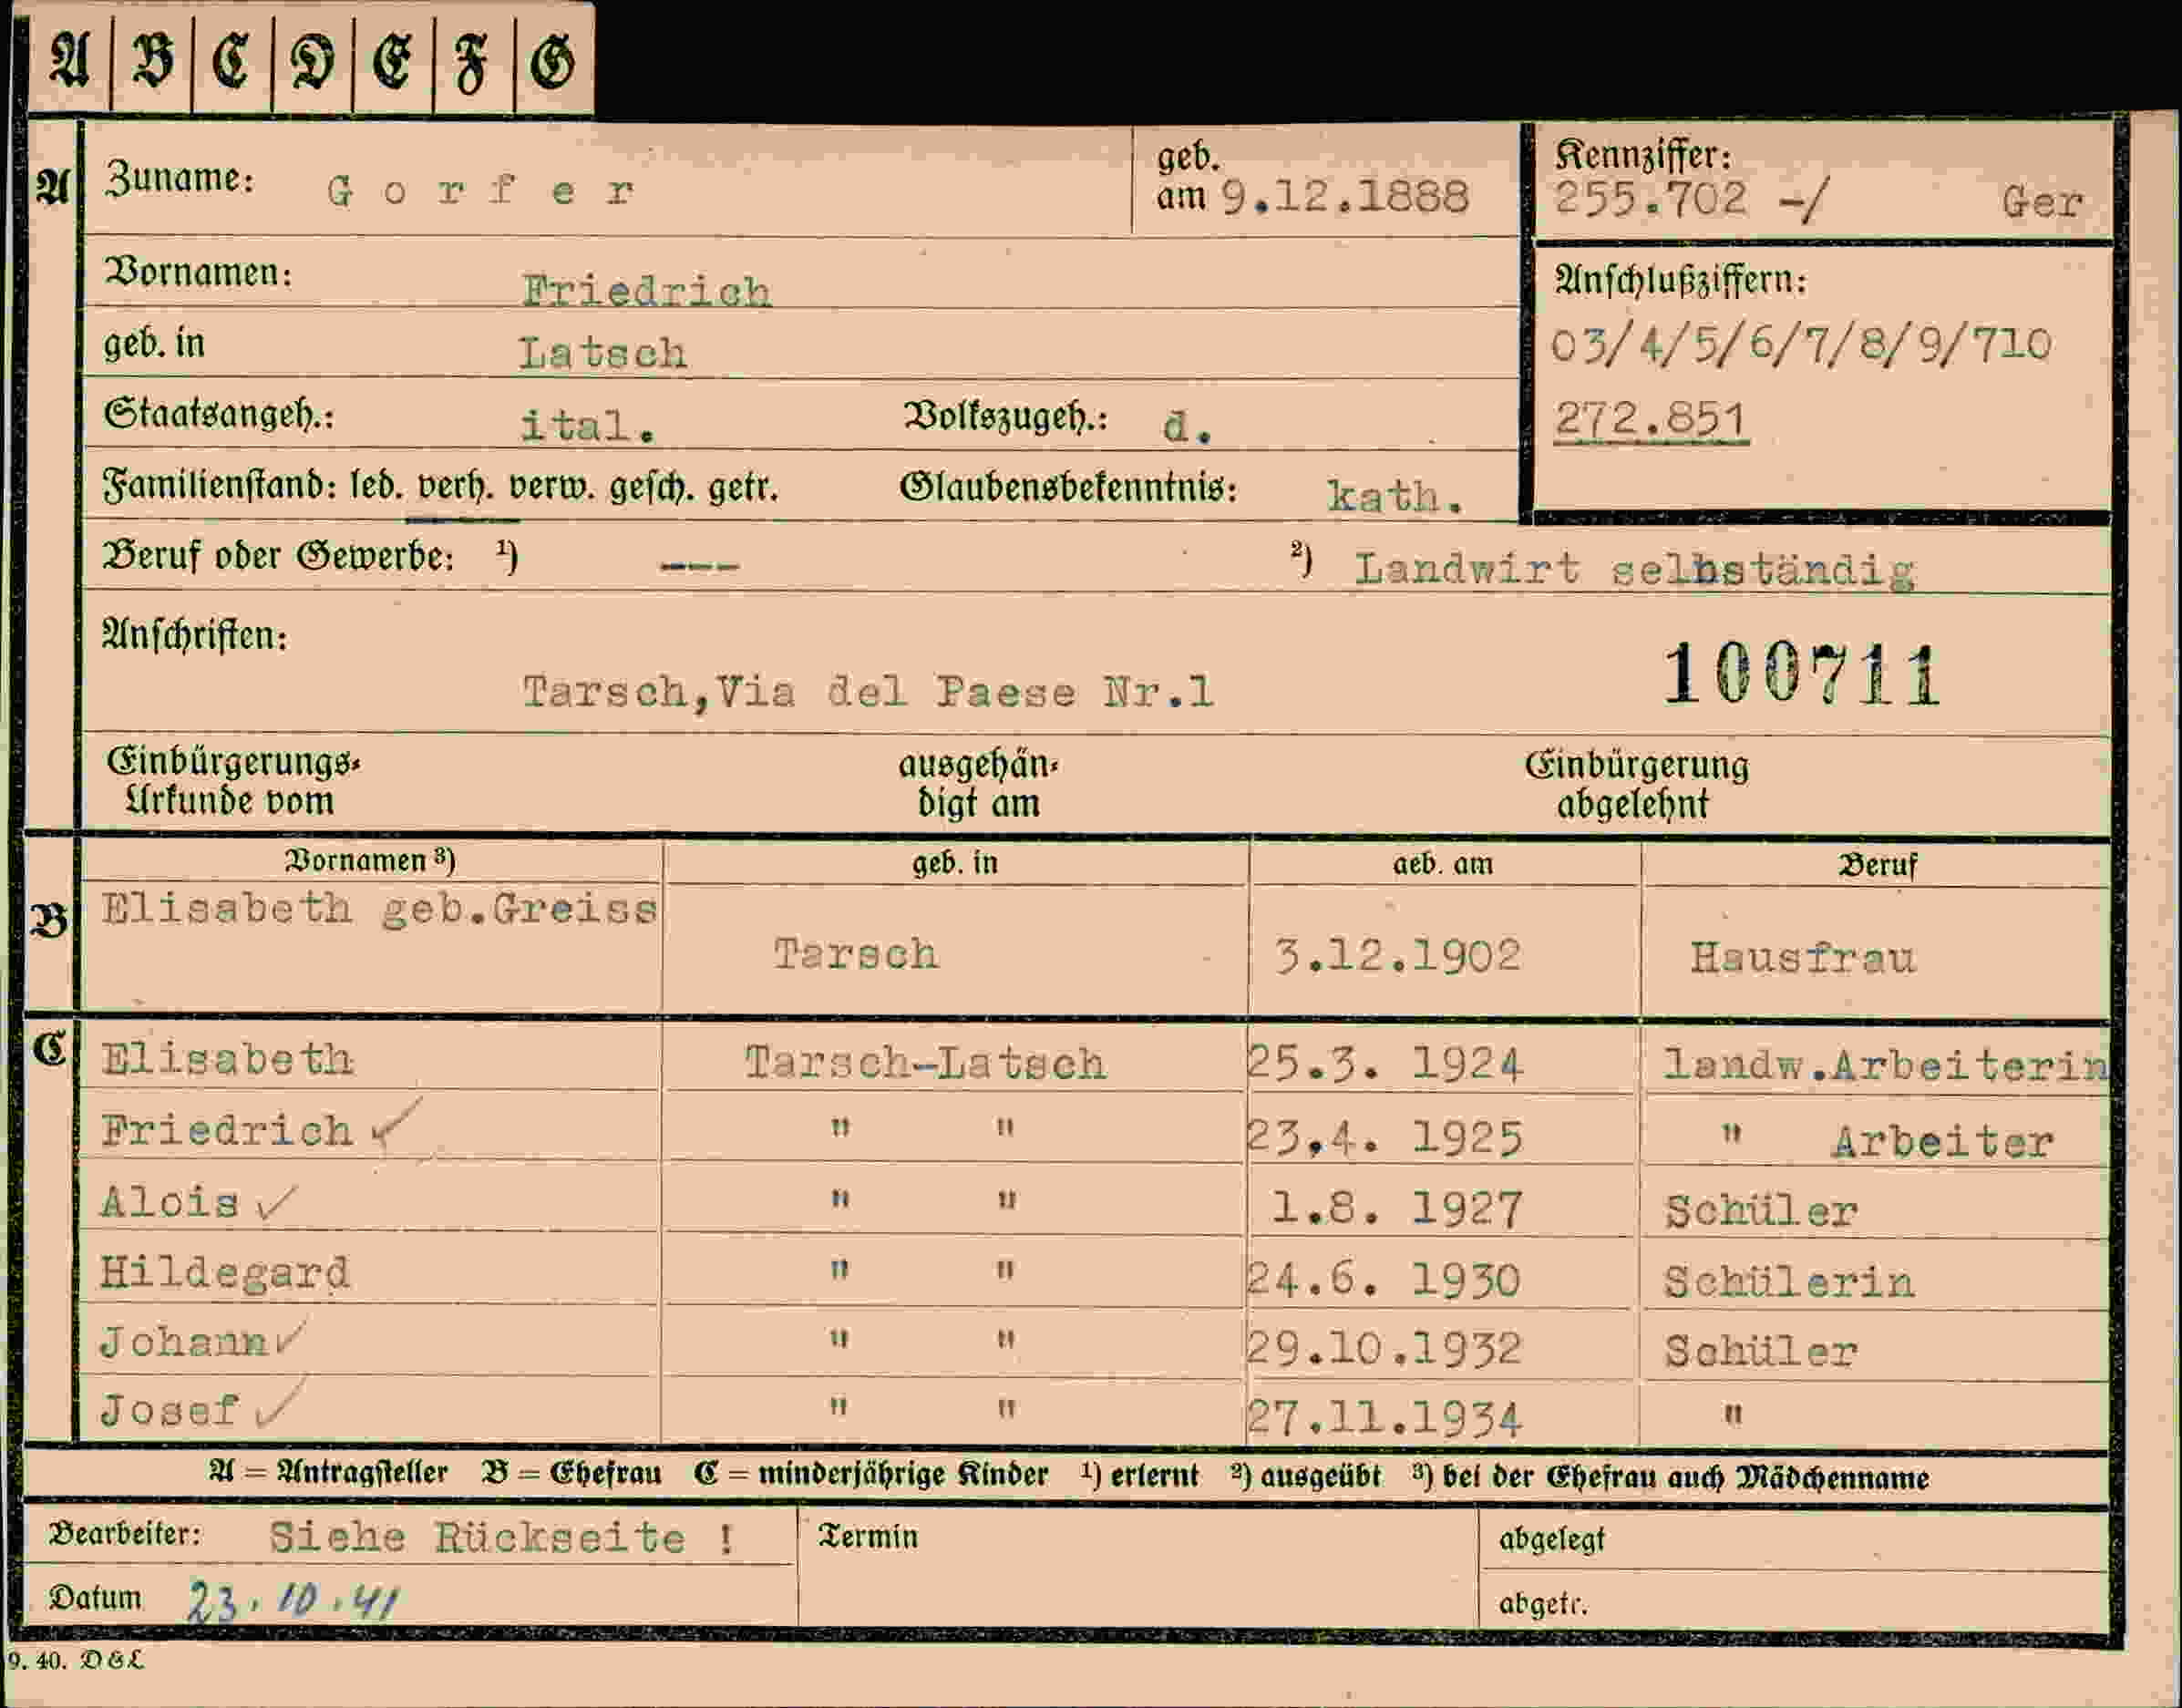 A B C D E F G
A Zuname: Gorfer geb. am 9.12.1888 Kennziffer: 255.702 -/ Ger
Vornamen: Friedrich Anschlußziffern:
geb. in Latsch 03/4/5/6/7/8/9/710
Staatsangeh.: ital. Volkszugeh.: d. 272.851
Familienstand: led. verh. verw. gesch. getr. Glaubensbekenntnis: kath.
Beruf oder Gewerbe: ¹) --- ²) Landwirt selbständig
Anschriften:
Tarsch,Via del Paese Nr.1 100711
Einbürgerungs- ausgehän- Einbürgerung
Urkunde vom digt am abgelehnt
Vornamen ³) geb. in geb. am Beruf
B Elisabeth geb.Greiss
Tarsch 3.12.1902 Hausfrau
C Elisabeth Tarsch-Latsch 25.3. 1924 landw.Arbeiterin
Friedrich ✓ " " 23.4. 1925 " Arbeiter
Alois ✓ " " 1.8. 1927 Schüler
Hildegard " " 24.6. 1930 Schülerin
Johann ✓ " " 29.10.1932 Schüler
Josef ✓ " " 27.11.1934 "
A = Antragsteller B = Ehefrau C = minderjährige Kinder ¹) erlernt ²) ausgeübt ³) bei der Ehefrau auch Mädchenname
Bearbeiter: Siehe Rückseite ! Termin abgelegt
Datum 23.10.41 abgetr.
9. 40. D & L